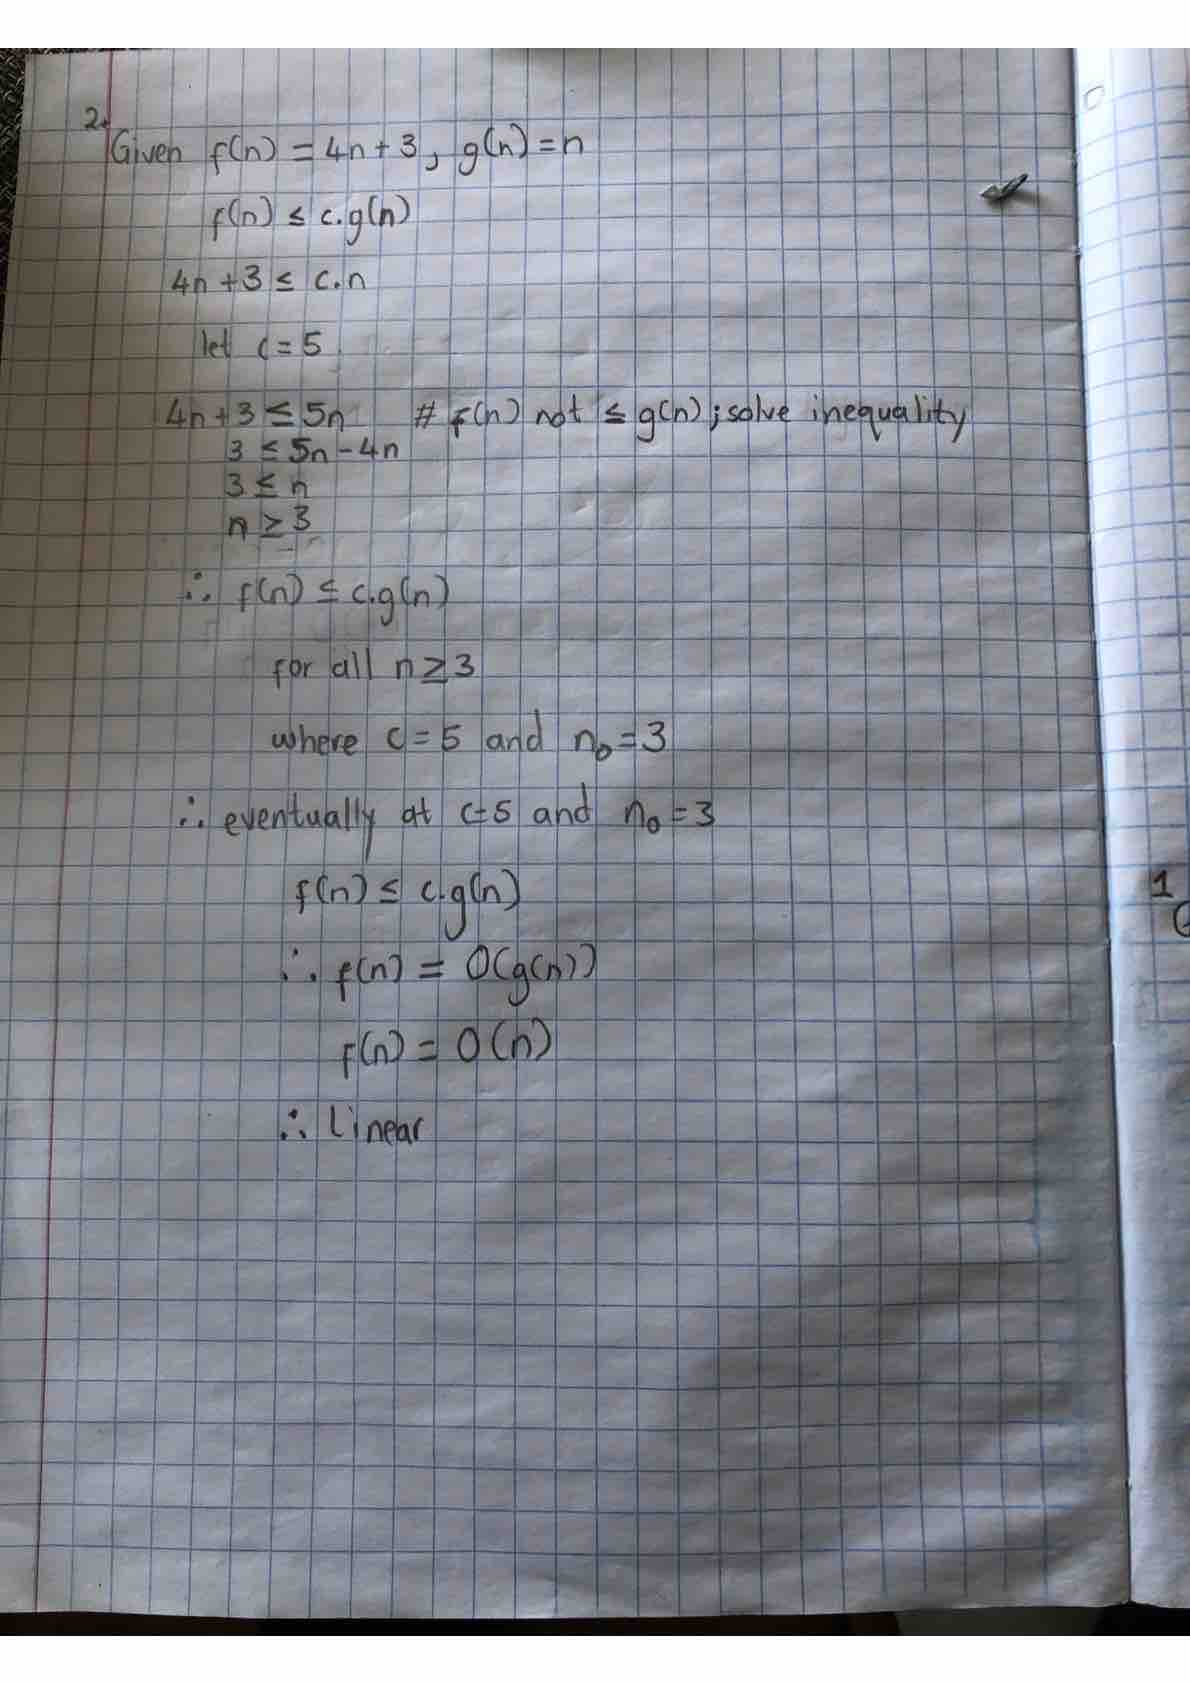 2.
Given f(n) = 4n + 3, g(n) = n
f(n) ≤ c.g(n)
4n + 3 ≤ c.n
let c = 5
4n + 3 ≤ 5n # f(n) not ≤ g(n); solve inequality
3 ≤ 5n - 4n
3 ≤ n
n ≥ 3
∴ f(n) ≤ c.g(n)
for all n ≥ 3
where c = 5 and n₀ = 3
∴ eventually at c = 5 and n₀ = 3
f(n) ≤ c.g(n)
∴ f(n) = O(g(n))
f(n) = O(n)
∴ Linear
1